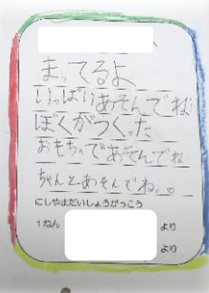 まってるよ
いっぱいあそんでね
ぼくがつくった
おもちゃであそんでね
ちゃんとあそんでね。
にしやよだいしょうがっこう
1ねん より
より